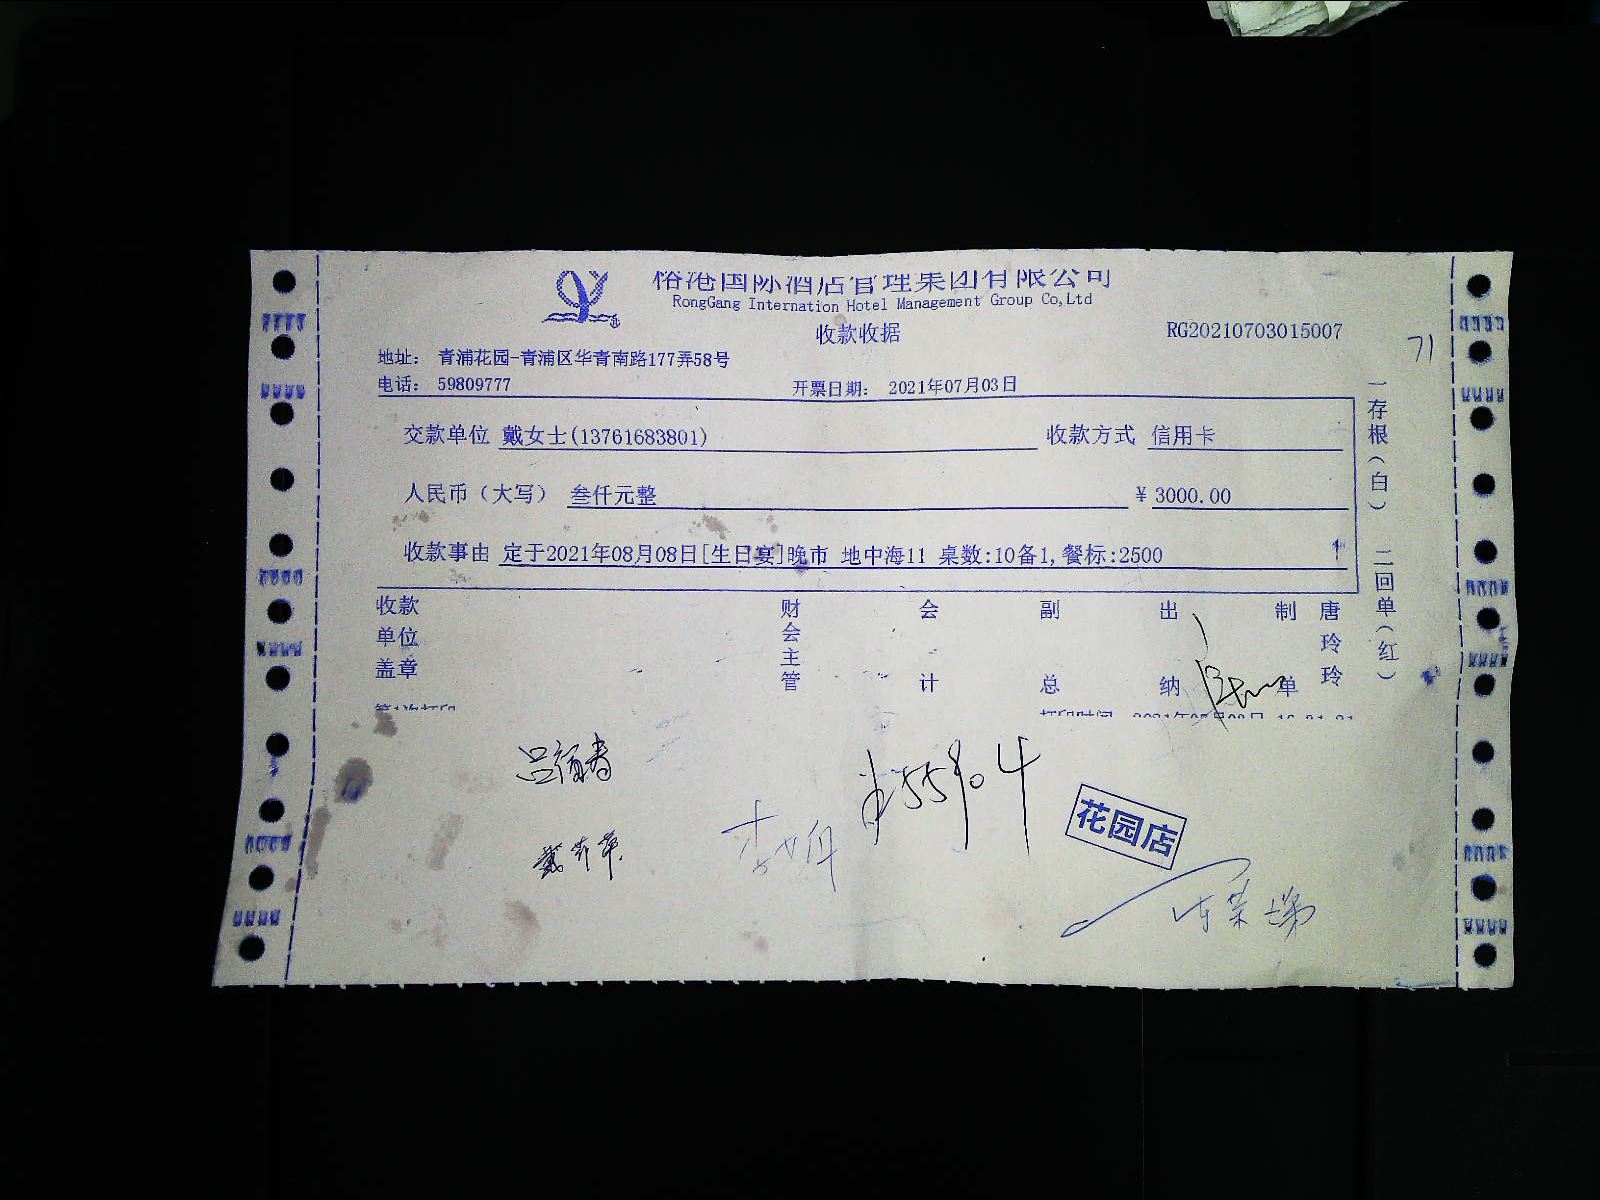 裕港国际酒店管理集团有限公司
RongGang Internation Hotel Management Group Co,Ltd
收款收据
RG20210703015007
71
地址： 青浦花园-青浦区华青南路177弄58号
电话： 59809777
开票日期： 2021年07月03日
交款单位 戴女士(13761683801)
收款方式 信用卡
人民币（大写） 叁仟元整
¥ 3000.00
收款事由 定于2021年08月08日[生日宴]晚市 地中海11 桌数:10备1,餐标:2500
一存根（白） 二回单（红）
收款单位盖章
财会主管
会计
副总
出纳
制单
唐玲玲
第1次打印
打印时间
花园店